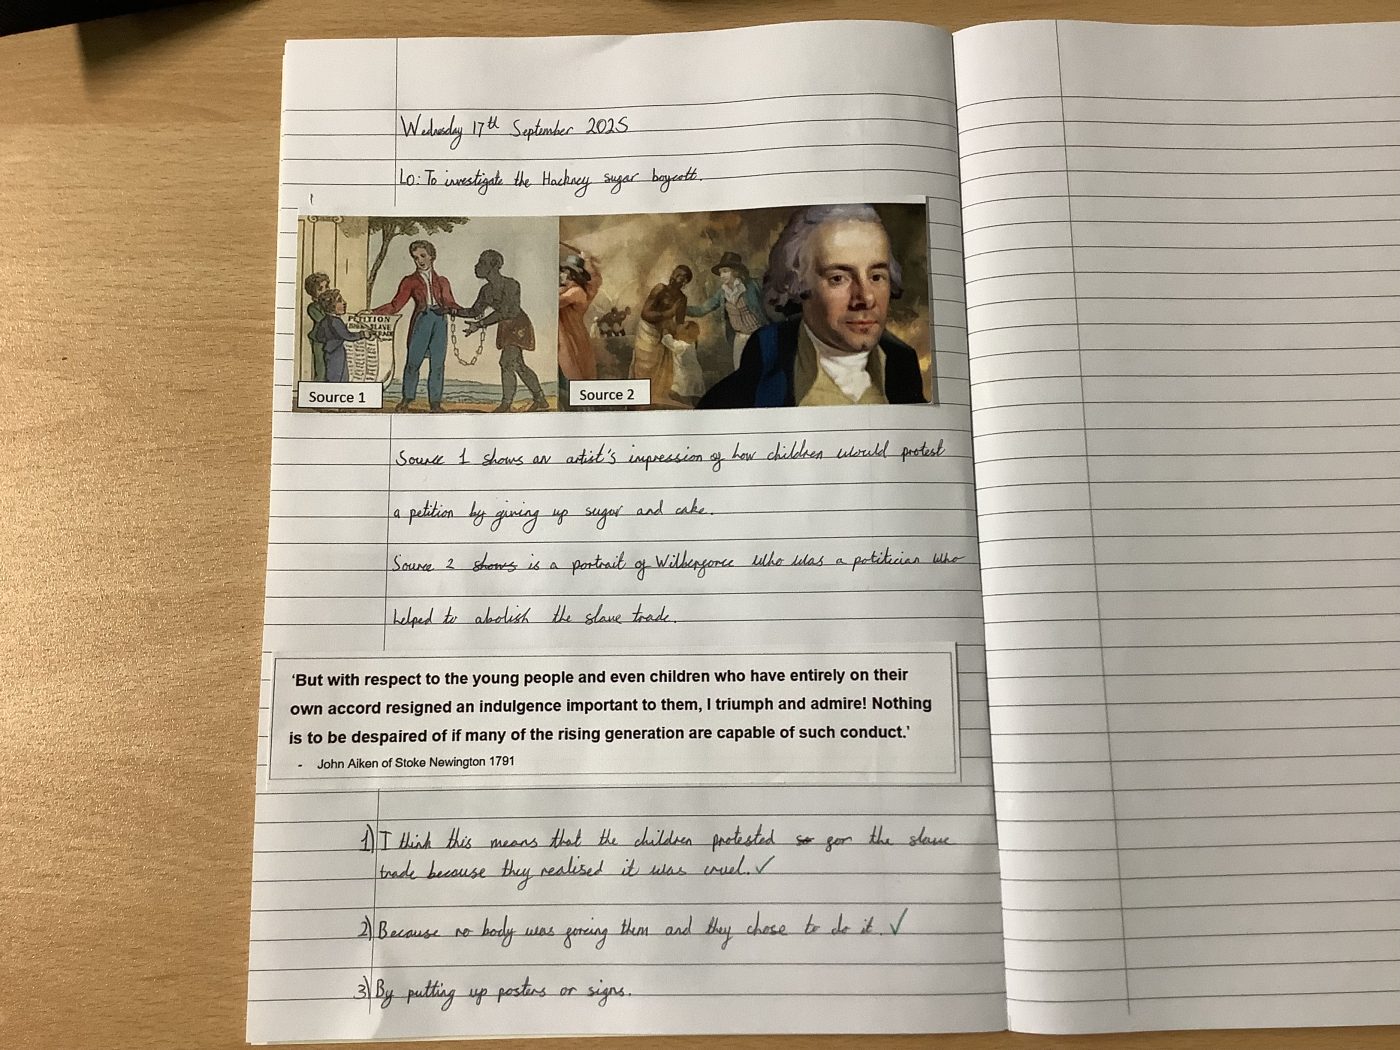 Wednesday 17th September 2025
LO: To investigate the Hackney sugar boycott.
PETITION
SLAVE
TRADE
Source 1
Source 2
Source 1 shows an artist's impression of how children would protest
a petition by giving up sugar and cake.
Source 2 shows is a portrait of Wilberforce who was a potitician who
helped to abolish the slave trade.
'But with respect to the young people and even children who have entirely on their
own accord resigned an indulgence important to them, I triumph and admire! Nothing
is to be despaired of if many of the rising generation are capable of such conduct.'
- John Aiken of Stoke Newington 1791
1) I think this means that the children protested so for the slave
trade because they realised it was cruel. ✓
2) Because no body was forcing them and they chose to do it. ✓
3) By putting up posters or signs.